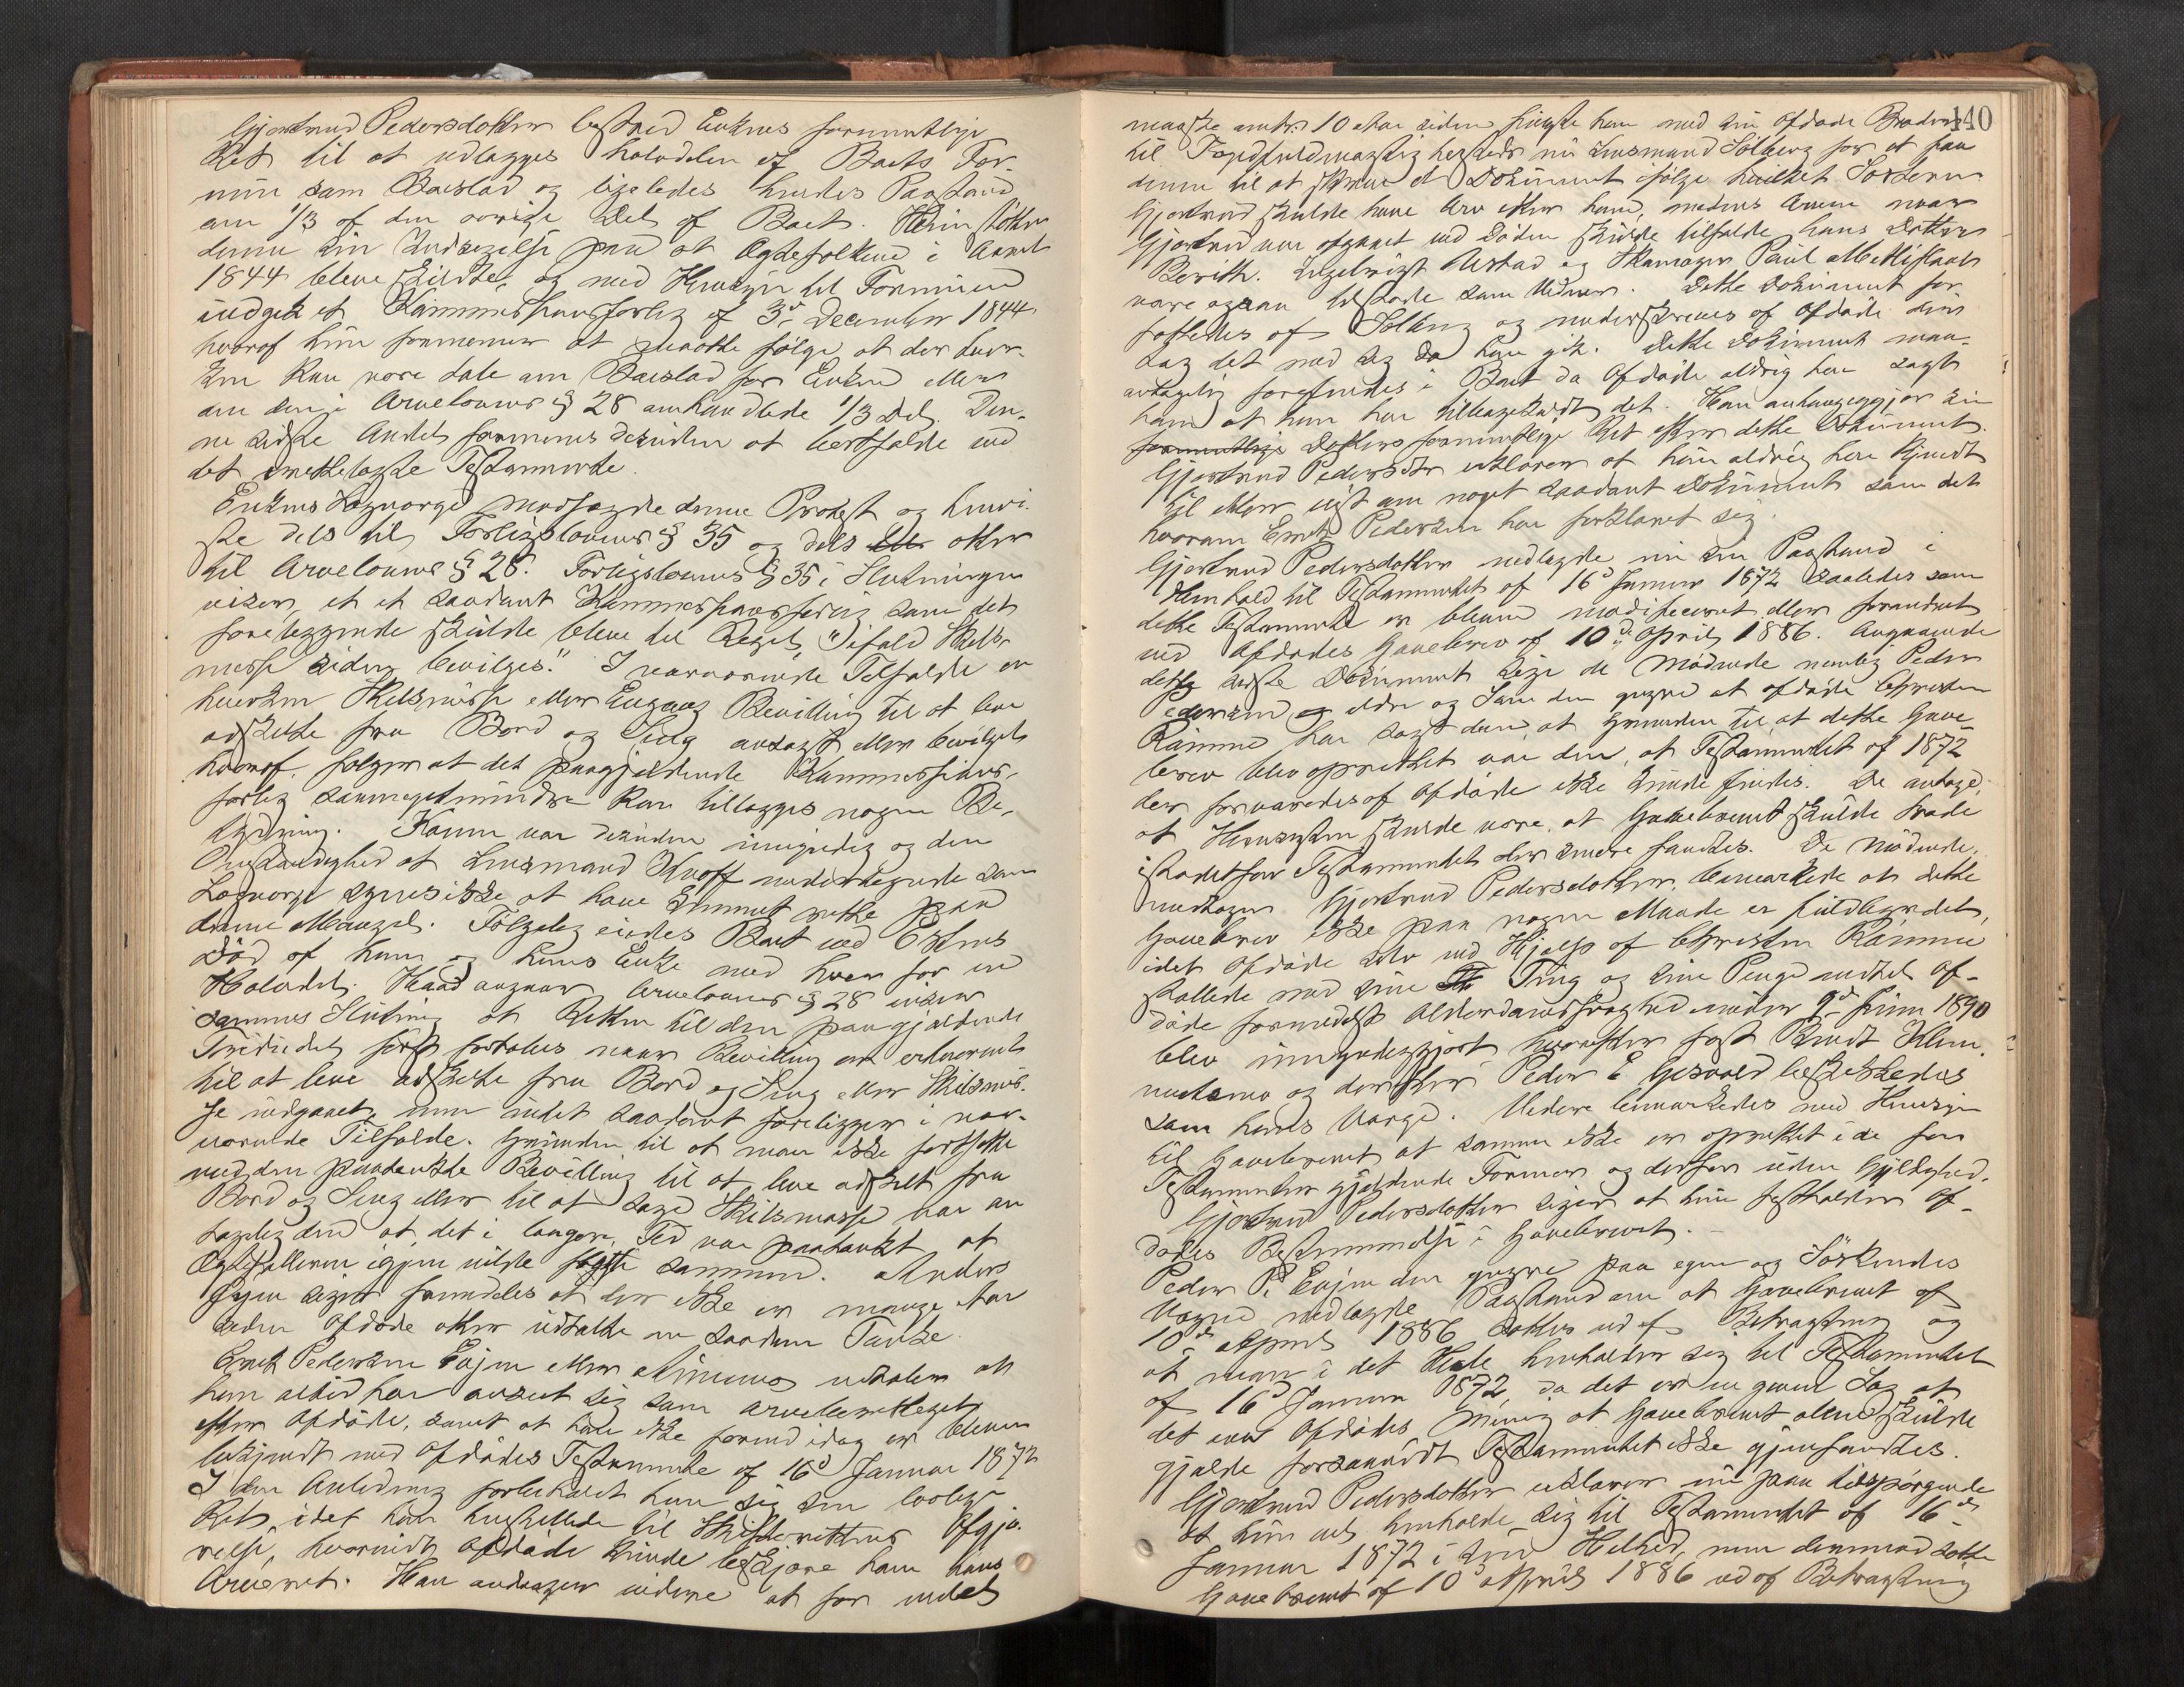 Gjertrud Pedersdotter bestred Enkens formentlige
Ret til at udlægges Halvdelen af Boets For-
mue som Boeslod og ligeledes hendes Paastand
om 1/3 af den øvrige Del af Boet. Hun støtter
denne sin Indsigelse paa at Ægtefolkene i Aaret
1844 bleve skildte, og med Hensyn til Formuen
indgik et Kammersforlig af 3d December 1844
hvoraf hun formener at maatte følge, at der hver-
ken kan være Tale om Boeslod for Enken eller
om den i Arvelovens § 28 omhandlede 1/3 Del. Den-
ne sidste Andel formenes desuden at bortfalde ved
det oprettede Testamente.
Enkens Lagværge modsagde denne Protest og henvi-
ste dels til Forligslovens § 35 og dels atter
til Arvelovens § 28. Forligslovens § 35 i Slutningen
viser, at et saadant Kammersforlig som det
foreliggende skulde blive til Regel, "ifald Skils-
misse siden bevilges." I nærværende Tilfælde er
hverken Skilsmisse eller Engang Bevilling til at leve
adskilte fra Bord og Seng ansøgt eller bevilget
hvoraf følger at det paagjældende Kammers-
forlig saameget mindre kan tillægges nogen Be-
tydning. Konen var desuden umyndig og den
Omstændighed at Lensmand Knoff underskrev som
Lagværge synes ikke at have kunnet rette paa
denne Mangel. Følgelig eiedes Boet ved Estens
Død af ham og hans Enke med hver for en
Halvdel. Hvad angaar Arvelovens § 28 viser
sammes Slutning at Retten til den paagjældende
Trediedel først fortabes naar Bevilling er erhvervet
til at leve adskilte fra Bord og Seng eller Skilsmis-
se indgaaet, men intet saadant foreligger i nær-
værende Tilfælde. Grunden til at man ikke fortsatte
med den paatænkte Bevilling til at leve adskilt fra
Bord og Seng eller til at søge Skilsmisse var an-
tagelig den at det i længere Tid var paatænkt at
Ægtefællerne igjen vilde flytte sammen. Anders
Øyen siger fremdeles at der ikke er mange Aar
siden Afdøde atter udtalte en saadan Tanke.
Erik Pedersen Evjen eller Aunmo udtaler at
han altid har anseet sig som arveberettiget
efter Afdøde, samt at han ikke førend idag er bleven
bekjendt med Afdødes Testamente af 16d Januar 1872
I den Anledning forbeholdt han sig sin lovlige
Ret, idet han henstillede til Skifterettens Afgjø-
relse, hvorvidt Afdøde kunde beskjære ham hans
Arveret. Han andrager videre at for endel
140
maaske omtr. 10 Aar siden fulgte han med sin afdøde Broder
til Fogdfuldmægtig herstedts nu Lensmand Solberg for at faa
denne til at skrive et Dokument ifølge hvilket Søsteren
Gjertrud skulde have Arv efter ham, medens Arven naar
Gjertrud var afgaaet ved Døden skulde tilfalde hans Datter
Berith. Engelbrigt Ustad og Skomager Paul Mettislaab
vare ogsaa tilstede som Vidner. Dette Dokument for-
fattedes af Solberg og underskreves af Afdøde der
tog det med sig da han gik. Dette Dokument maa
antagelig forefindes i Boet da Afdøde aldrig har sagt
ham at han har tilbagekaldt det. Han anhængiggjør sin
Datters formentlige Ret efter dette Dokument.
Gjertrud Pedersdtr erklærer at hun aldrig har kjendt
til eller vidst om noget saadant Dokument som det
hvorom Erik Pedersen har forklaret sig.
Gjertrud Pedersdotter nedlagde nu sin Paastand i
Henhold til Testamentet af 16d Januar 1872 saaledes som
dette Testamente er bleven modificeret eller forandret
ved Afdødes Gavebrev af 10de April 1886. Angaaende
dette sidste Dokument sige de Mødende nemlig Peder
Pedersen ældre og Iam den yngre at afdøde Christen
Ramme har sagt dem, at Grunden til at dette Gave-
brev blev oprettet var den, at Testamentet af 1872
der forvaredes af Afdøde ikke kunde findes. De antage
at Hensigten skulde være, at Gavebrevet skulde træde
istedetfor Testamentet der savnedes. De Mødende,
undtagen Gjertrud Pedersdotter, bemærkede at dette
Gavebrev ikke paa nogen Maade er fuldbyrdet,
idet Afdøde selv ved Hjælp af Christen Ramme
skaltede med sine Ting og sine Penge indtil Af-
døde formedelst Alderdomssvaghed under 9d Juni 1890
blev umyndiggjort hvorefter først Bendt Klem-
metsmo og derefter Peder E Gisvold beskikkedes
som hans Værge. Videre bemærkedes med Hensyn
til Gavebrevet at samme ikke er oprettet i de for
Testamenter gjældende Former og derfor uden Gyldighed.
Gjertrud Pedersdotter siger at hun fastholder Af-
dødes Bestemmelse i Gavebrevet.
Peder P. Evjen den yngre paa egne og Søskendes
Vegne nedlagde Paastand om at Gavebrevet af
10de April 1886 sættes ud af Betragtning og
at man i det Hele henholder sig til Testamentet
af 16d Januar 1872, da det er en given Sag at
det var Afdødes Mening at Gavebrevet alene skulde
gjælde forsaavidt Testamentet ikke gjenfandtes.
Gjertrud Pedersdotter erklærer nu paa Tilspørgende
at hun vil henholde sig til Testamentet af 16de
Januar 1872 i sin Helhed, men dermed sætte
Gavebrevet af 10d April 1886 ud af Betragtning